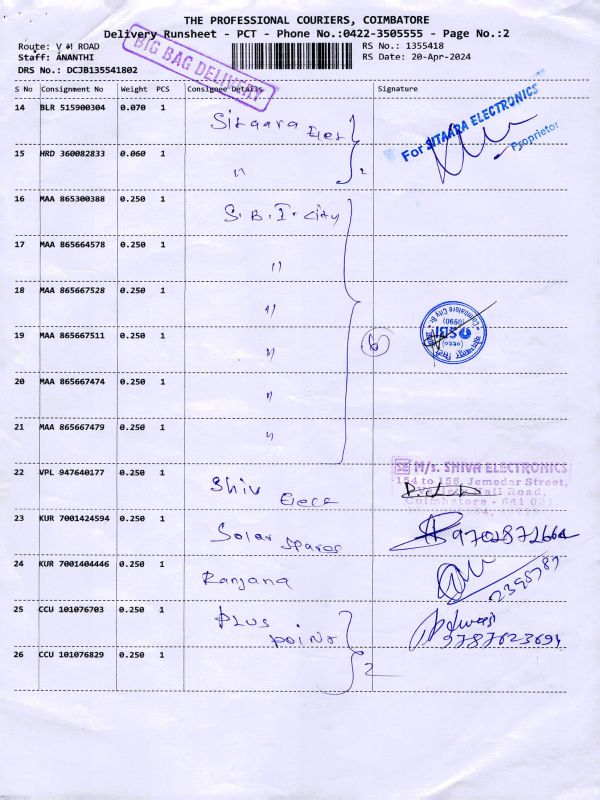 THE PROFESSIONAL COURIERS, COIMBATORE
Delivery Runsheet - PCT - Phone No.:0422-3505555 - Page No.:2
Route: V H ROAD
RS No.: 1355418
Staff: ANANTHI
RS Date: 20-Apr-2024
DRS No.: DCJB135541802
BIG BAG DELIVERY
S No Consignment No Weight PCS Consignee Details Signature
14 BLR 515900304 0.070 1 Sitaara Elec
For SITAARA ELECTRONICS
Proprietor
15 HRD 360082833 0.060 1 " 2
16 MAA 865300388 0.250 1 S.B.I. City
17 MAA 865664578 0.250 1 "
18 MAA 865667528 0.250 1 "
19 MAA 865667511 0.250 1 " 6
SBI
20 MAA 865667474 0.250 1 "
21 MAA 865667479 0.250 1 "
22 VPL 947640177 0.250 1 Shiv Elece
M/s. SHIVA ELECTRONICS
154 to 156, Jemedar Street,
Coimbatore - 641 001.
23 KUR 7001424594 0.250 1 Solar Spares
24 KUR 7001404446 0.250 1 Ranjana
25 CCU 101076703 0.250 1 Plus Point
9787623694
26 CCU 101076829 0.250 1 2